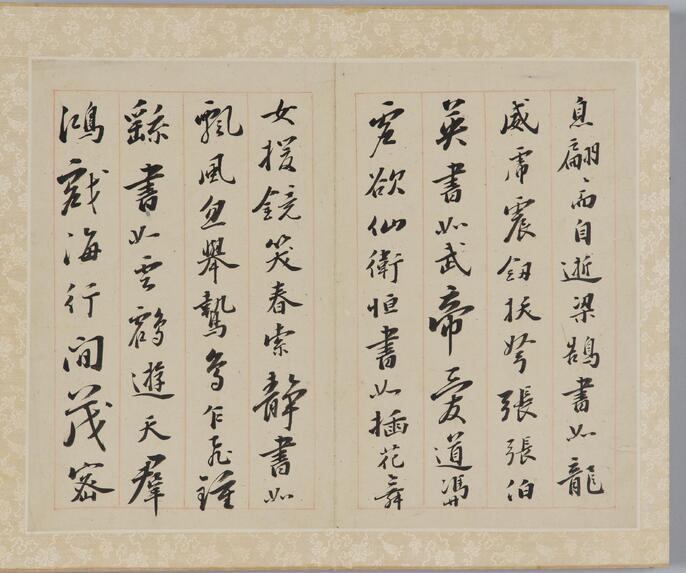 息翩〻而自逝梁鵠書如龍
威虎震劍拔弩張張伯
英書如武帝愛道馮
虛欲仙衛恒書如插花舞
女援鏡笑春索靜書如
飄風忽舉鷙鳥乍飛鍾
繇書如雲鶴遊天羣
鴻戲海行間茂密